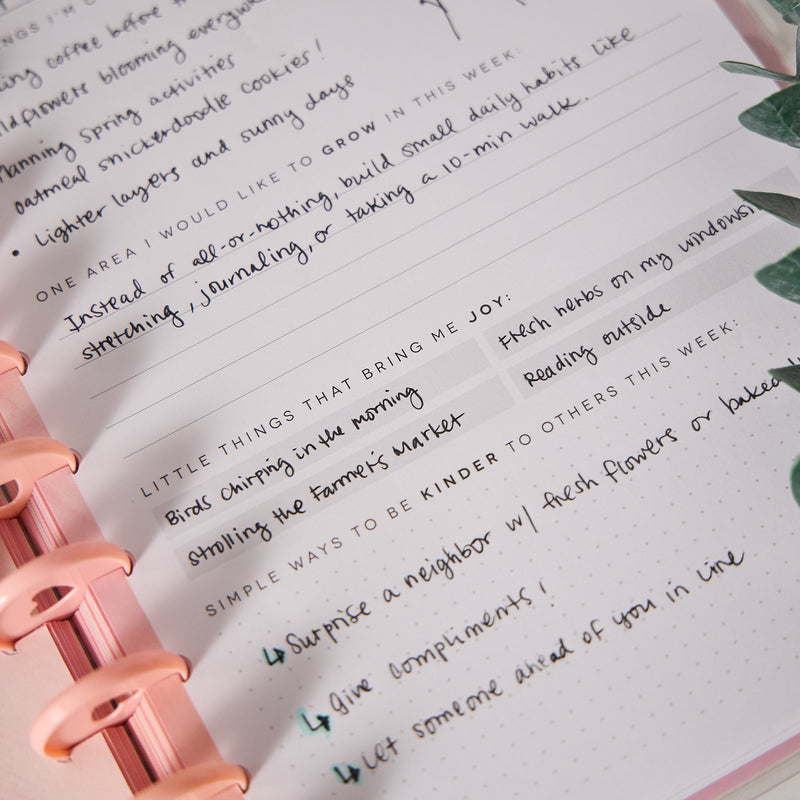 coffee before
wildflowers blooming
Planning spring activities
oatmeal snickerdoodle cookies!
• Lighter layers and sunny days
ONE AREA I WOULD LIKE TO GROW IN THIS WEEK:
Instead of all-or-nothing, build small daily habits like
stretching, journaling, or taking a 10-min walk.
LITTLE THINGS THAT BRING ME JOY:
Birds chirping in the morning Fresh herbs on my
Strolling the Farmer's Market Reading outside
SIMPLE WAYS TO BE KINDER TO OTHERS THIS WEEK:
↳ Surprise a neighbor w/ fresh flowers or baked
↳ Give compliments!
↳ Let someone ahead of you in line